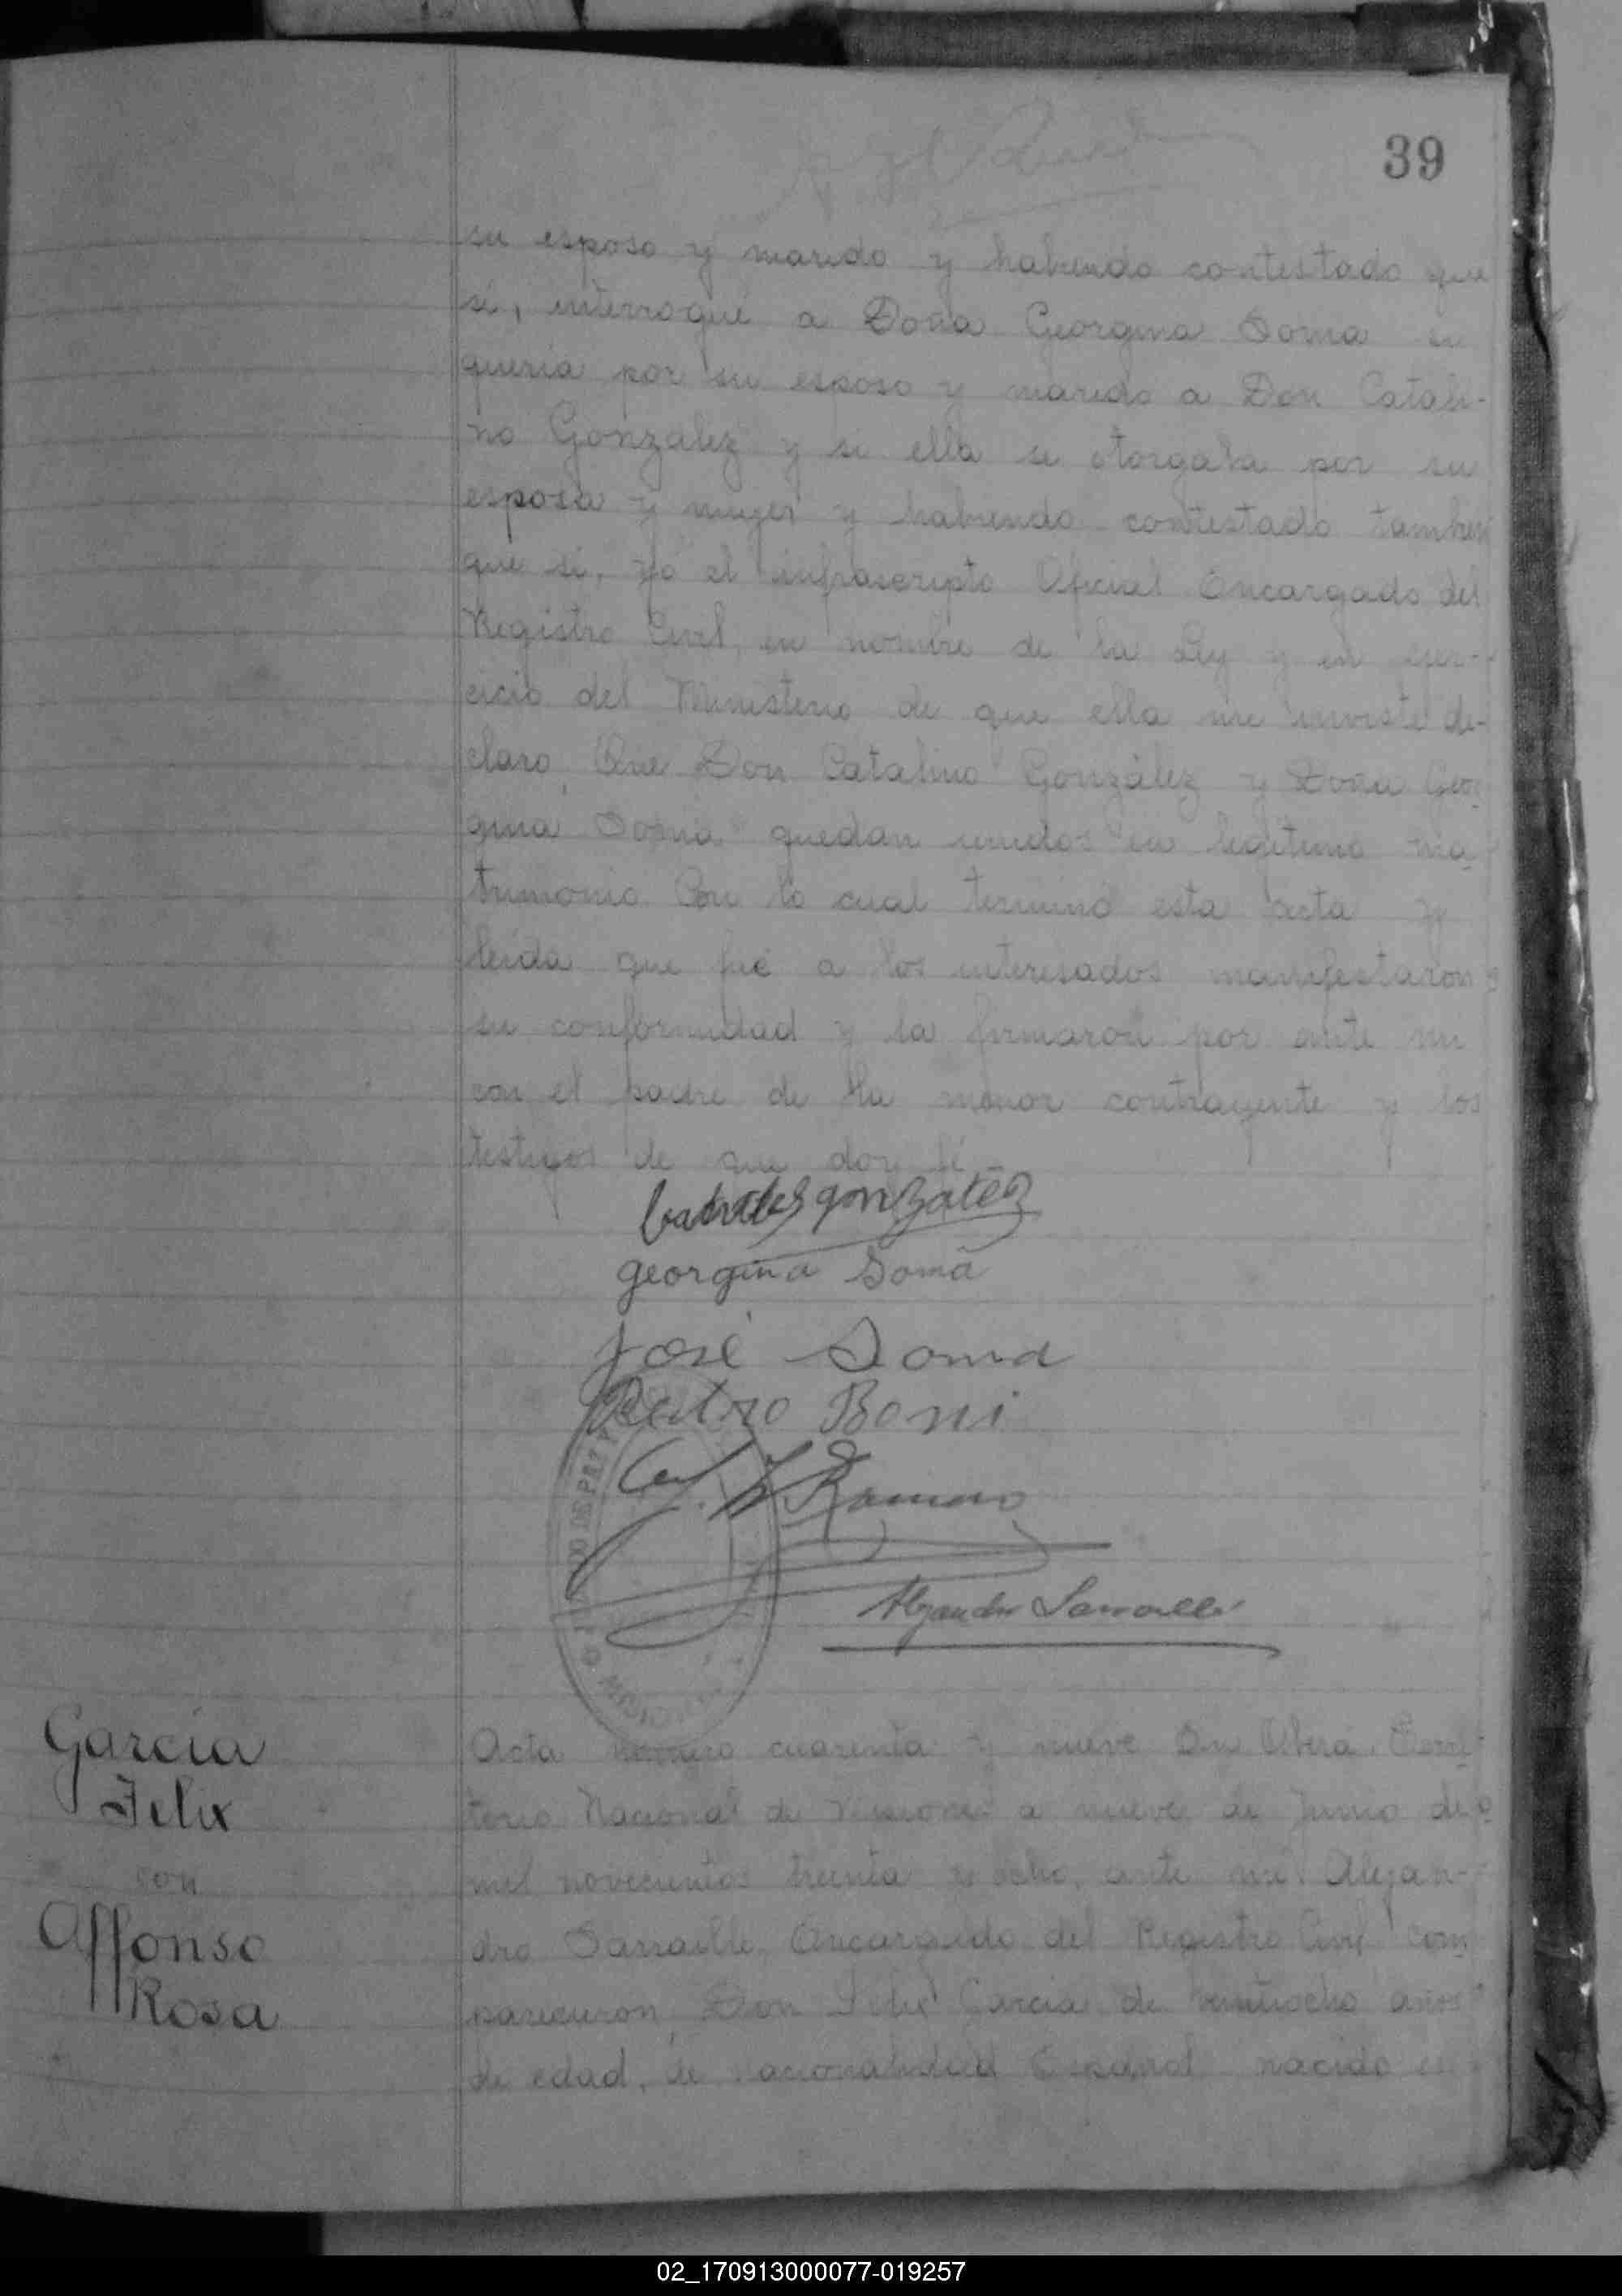 39
su esposo y marido y habiendo contestado que
si, interrogué a Doña Georgina Doma si
queria por su esposo y marido a Don Catali-
no González y si ella se otorgaba por su
esposa y mujer y habiendo contestado tambien
que si, yo el infrascripto Oficial Encargado del
Registro Civil, en nombre de la Ley y en ejer-
cicio del Ministerio de que ella me inviste de-
claro Que Don Catalino González y Doña Geor
gina Doma quedan unidos en legitimo ma
trimonio Con lo cual terminó esta acta y
leida que fué a los interesados manifestaron
su conformidad y la firmaron por ante mi
con el padre de la menor contrayente y los
testigos de que doy fé
gonzalez
georgina Doma
José Doma
Boni
Romero
Alejandro Sarraille
Garcia
Felix
con
Affonso
Rosa
Acta número cuarenta y nueve En Obera, Terri
torio Nacional de Misiones a nueve de Junio de
mil novecientos treinta y ocho, ante mi Alejan-
dro Sarraille, Encargado del Registro Civil com
parecieron, Don Felix Garcia de veintiocho años
de edad, de nacionalidad Español nacido en
02_170913000077-019257